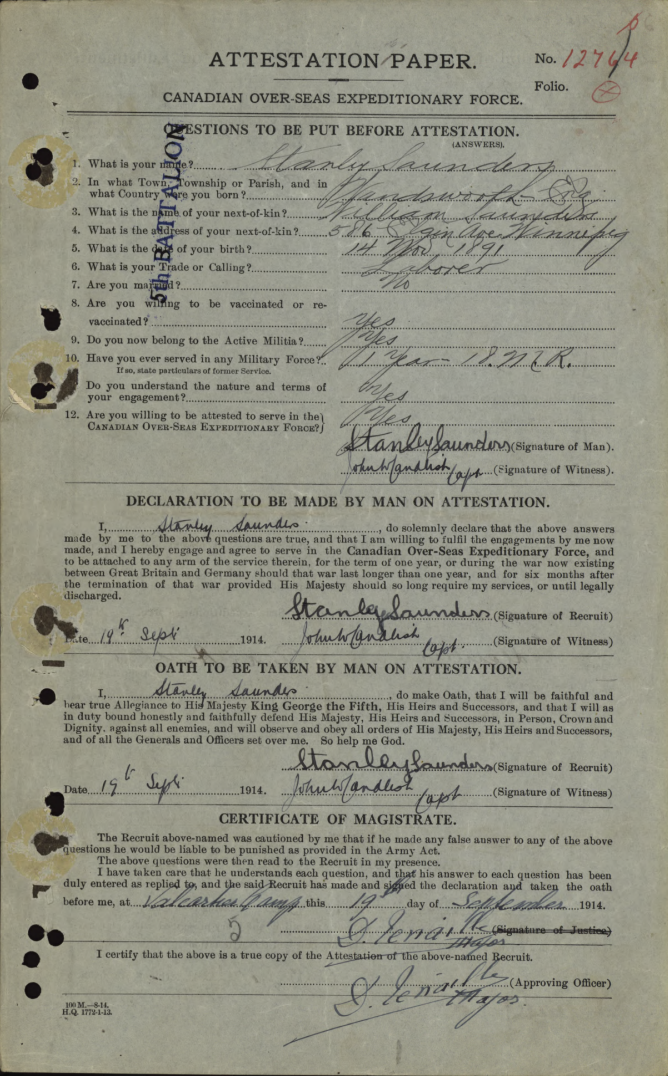 ATTESTATION PAPER.
No. 12764
Folio.
CANADIAN OVER-SEAS EXPEDITIONARY FORCE.
QUESTIONS TO BE PUT BEFORE ATTESTATION.
(ANSWERS).
5th BATTALION
1. What is your name? Stanley Saunders
2. In what Town, Township or Parish, and in
what Country were you born? Wandsworth Eng
3. What is the name of your next-of-kin? William Saunders
4. What is the address of your next-of-kin? 586 Elgin Ave Winnipeg
5. What is the date of your birth? 14 Nov. 1891
6. What is your Trade or Calling? Laborer
7. Are you married? No
8. Are you willing to be vaccinated or re-
vaccinated? Yes
9. Do you now belong to the Active Militia? Yes
10. Have you ever served in any Military Force? 1 Year - 18. M.R.
If so, state particulars of former Service.
Do you understand the nature and terms of
your engagement? Yes
12. Are you willing to be attested to serve in the
CANADIAN OVER-SEAS EXPEDITIONARY FORCE? Yes
Stanley Saunders (Signature of Man).
John W Candlish Capt (Signature of Witness).
DECLARATION TO BE MADE BY MAN ON ATTESTATION.
I, Stanley Saunders, do solemnly declare that the above answers
made by me to the above questions are true, and that I am willing to fulfil the engagements by me now
made, and I hereby engage and agree to serve in the Canadian Over-Seas Expeditionary Force, and
to be attached to any arm of the service therein, for the term of one year, or during the war now existing
between Great Britain and Germany should that war last longer than one year, and for six months after
the termination of that war provided His Majesty should so long require my services, or until legally
discharged.
Stanley Saunders (Signature of Recruit)
Date 19th Sept 1914. John W Candlish Capt. (Signature of Witness)
OATH TO BE TAKEN BY MAN ON ATTESTATION.
I, Stanley Saunders, do make Oath, that I will be faithful and
bear true Allegiance to His Majesty King George the Fifth, His Heirs and Successors, and that I will as
in duty bound honestly and faithfully defend His Majesty, His Heirs and Successors, in Person, Crown and
Dignity, against all enemies, and will observe and obey all orders of His Majesty, His Heirs and Successors,
and of all the Generals and Officers set over me. So help me God.
Stanley Saunders (Signature of Recruit)
Date 19th Sept 1914. John W Candlish Capt (Signature of Witness)
CERTIFICATE OF MAGISTRATE.
The Recruit above-named was cautioned by me that if he made any false answer to any of the above
questions he would be liable to be punished as provided in the Army Act.
The above questions were then read to the Recruit in my presence.
I have taken care that he understands each question, and that his answer to each question has been
duly entered as replied to, and the said Recruit has made and signed the declaration and taken the oath
before me, at Valcartier Camp this 19th day of September 1914.
5
Major (Signature of Justice)
I certify that the above is a true copy of the Attestation of the above-named Recruit.
Major. (Approving Officer)
100 M.—8-14.
H.Q. 1772-1-13.